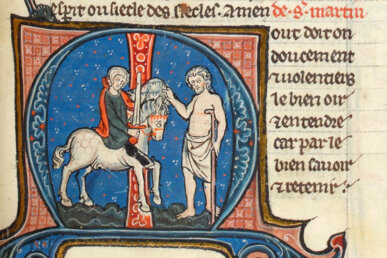 esprit ou siecle des siecles. Amen de .s. martin
out doit on
doucement
⁊ uolentiers
le bien oir
⁊ entendre
car par le
bien sauoir
⁊ retenir